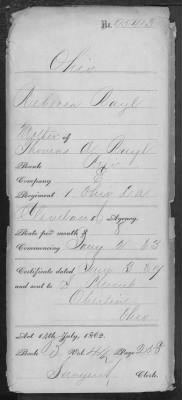 No. 95413
Ohio
Rebecca Dayl
Mother of
Thomas A. Dayl
Rank Priv
Company E
Regiment 1 Ohio L.A
Cleveland Agency.
Rate per month 8
Commencing Jany 4 63
Certificate dated
and sent to
Oberlin
Ohio
Act 14th July, 1862.
Book B Vol. Page 258
Sargent Clerk.